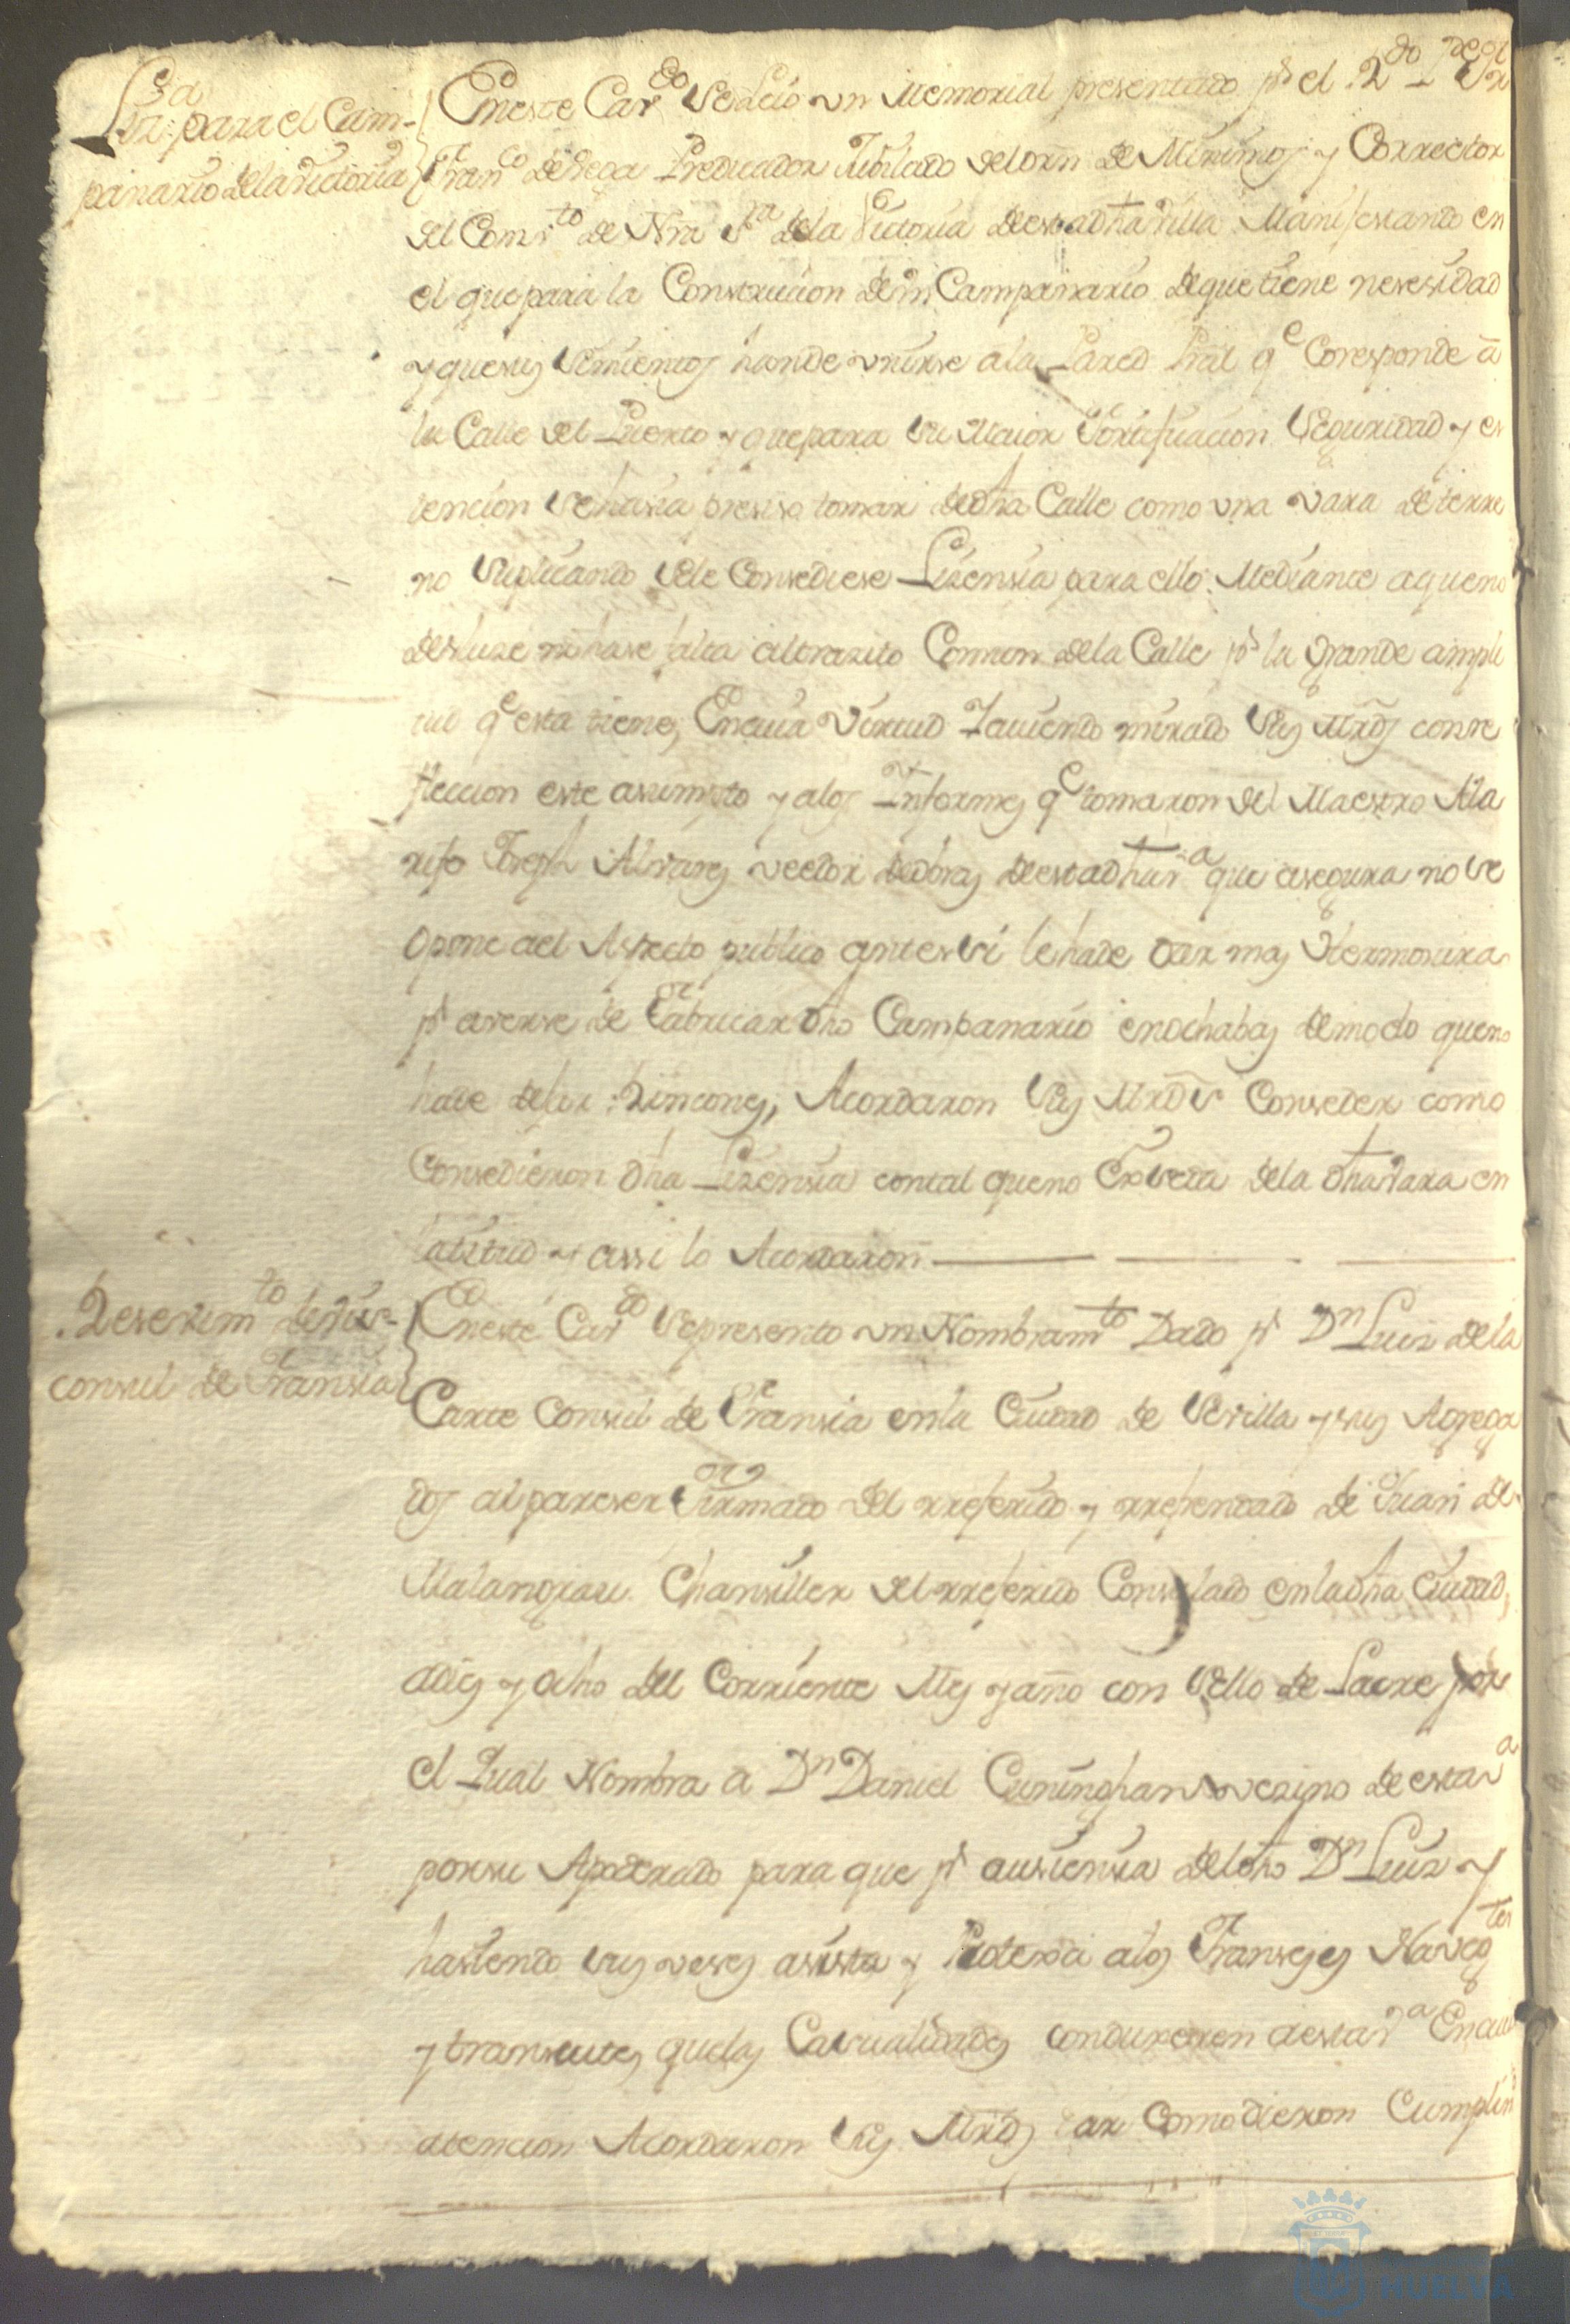 Liz.a para el Cam-
panario de la Victoria
En este Cav.do se Leio un Memorial presentado p.r el R.do P.e Fr.
Fran.co de Vega Predicador Jubilado del orñ de Minimos y Corrector
del Comv.to de Nrã S.ra de la Victoria de esta dha Villa Manifestando en
el que para la Construcion de un Campanario de que tiene nesesidad
y que sus Simientos han de unirse a la Pared Pral q.e Coresponde á
la Calle del Puerto y que para su Maior Fortificacion Seguridad y es
tencion se hasia presiso tomar de dha Calle como una vara de terre
no Suplicando se le Consediese Lisensia para ello: Mediante a que no
desluse ni hase falta al trasito Comun de la Calle p.r la grande ampli
tud q.e esta tiene; En cuia Virtud Haviendo mirado Sus Mrds con re
fleccion este asumpto y a los Informes q.e tomaron del Maestro Ala
rife Joseph Alvares veedor de obras de esta dha V.a que asegura no se
opone a el Aspecto publico antes si le ha de dar mas Hermosura
p.r averse de Fabricar dho Campanario en ochabas de modo que no
ha de deber Rincones, Acordaron Sus Mrds Conseder como
Consedieron dha Lisensia con tal que no Exseda de la dha Vara en
latitud y assi lo Acordaron
Resevim.to de Vis-
consul de Fransia
En este Cav.do se presento un Nombram.to Dado p.r D.n Luis de la
Carte Consul de Fransia en la Ciudad de Sevilla y sus Agrega
dos al pareser Firmado del rreferido y rrefrendado de Juan de
Malangrau Chansiller del rreferido Consulado en la dha Ciudad,
a dies y ocho del Corriente Mes y año con Sello de Lacre por
el Qual Nombra a D.n Daniel Cuningham vezino de esta V.a
por su Apoderado para que p.r ausiensia del dho D.n Luis y
hasiendo sus veses asista y Protexa a los Franseses Naveg.tes
y transeutes que las Casualidades conduxeren a esta V.a En cuia
atencion Acordaron Sus Mrds dar Como dieron Cumplim.